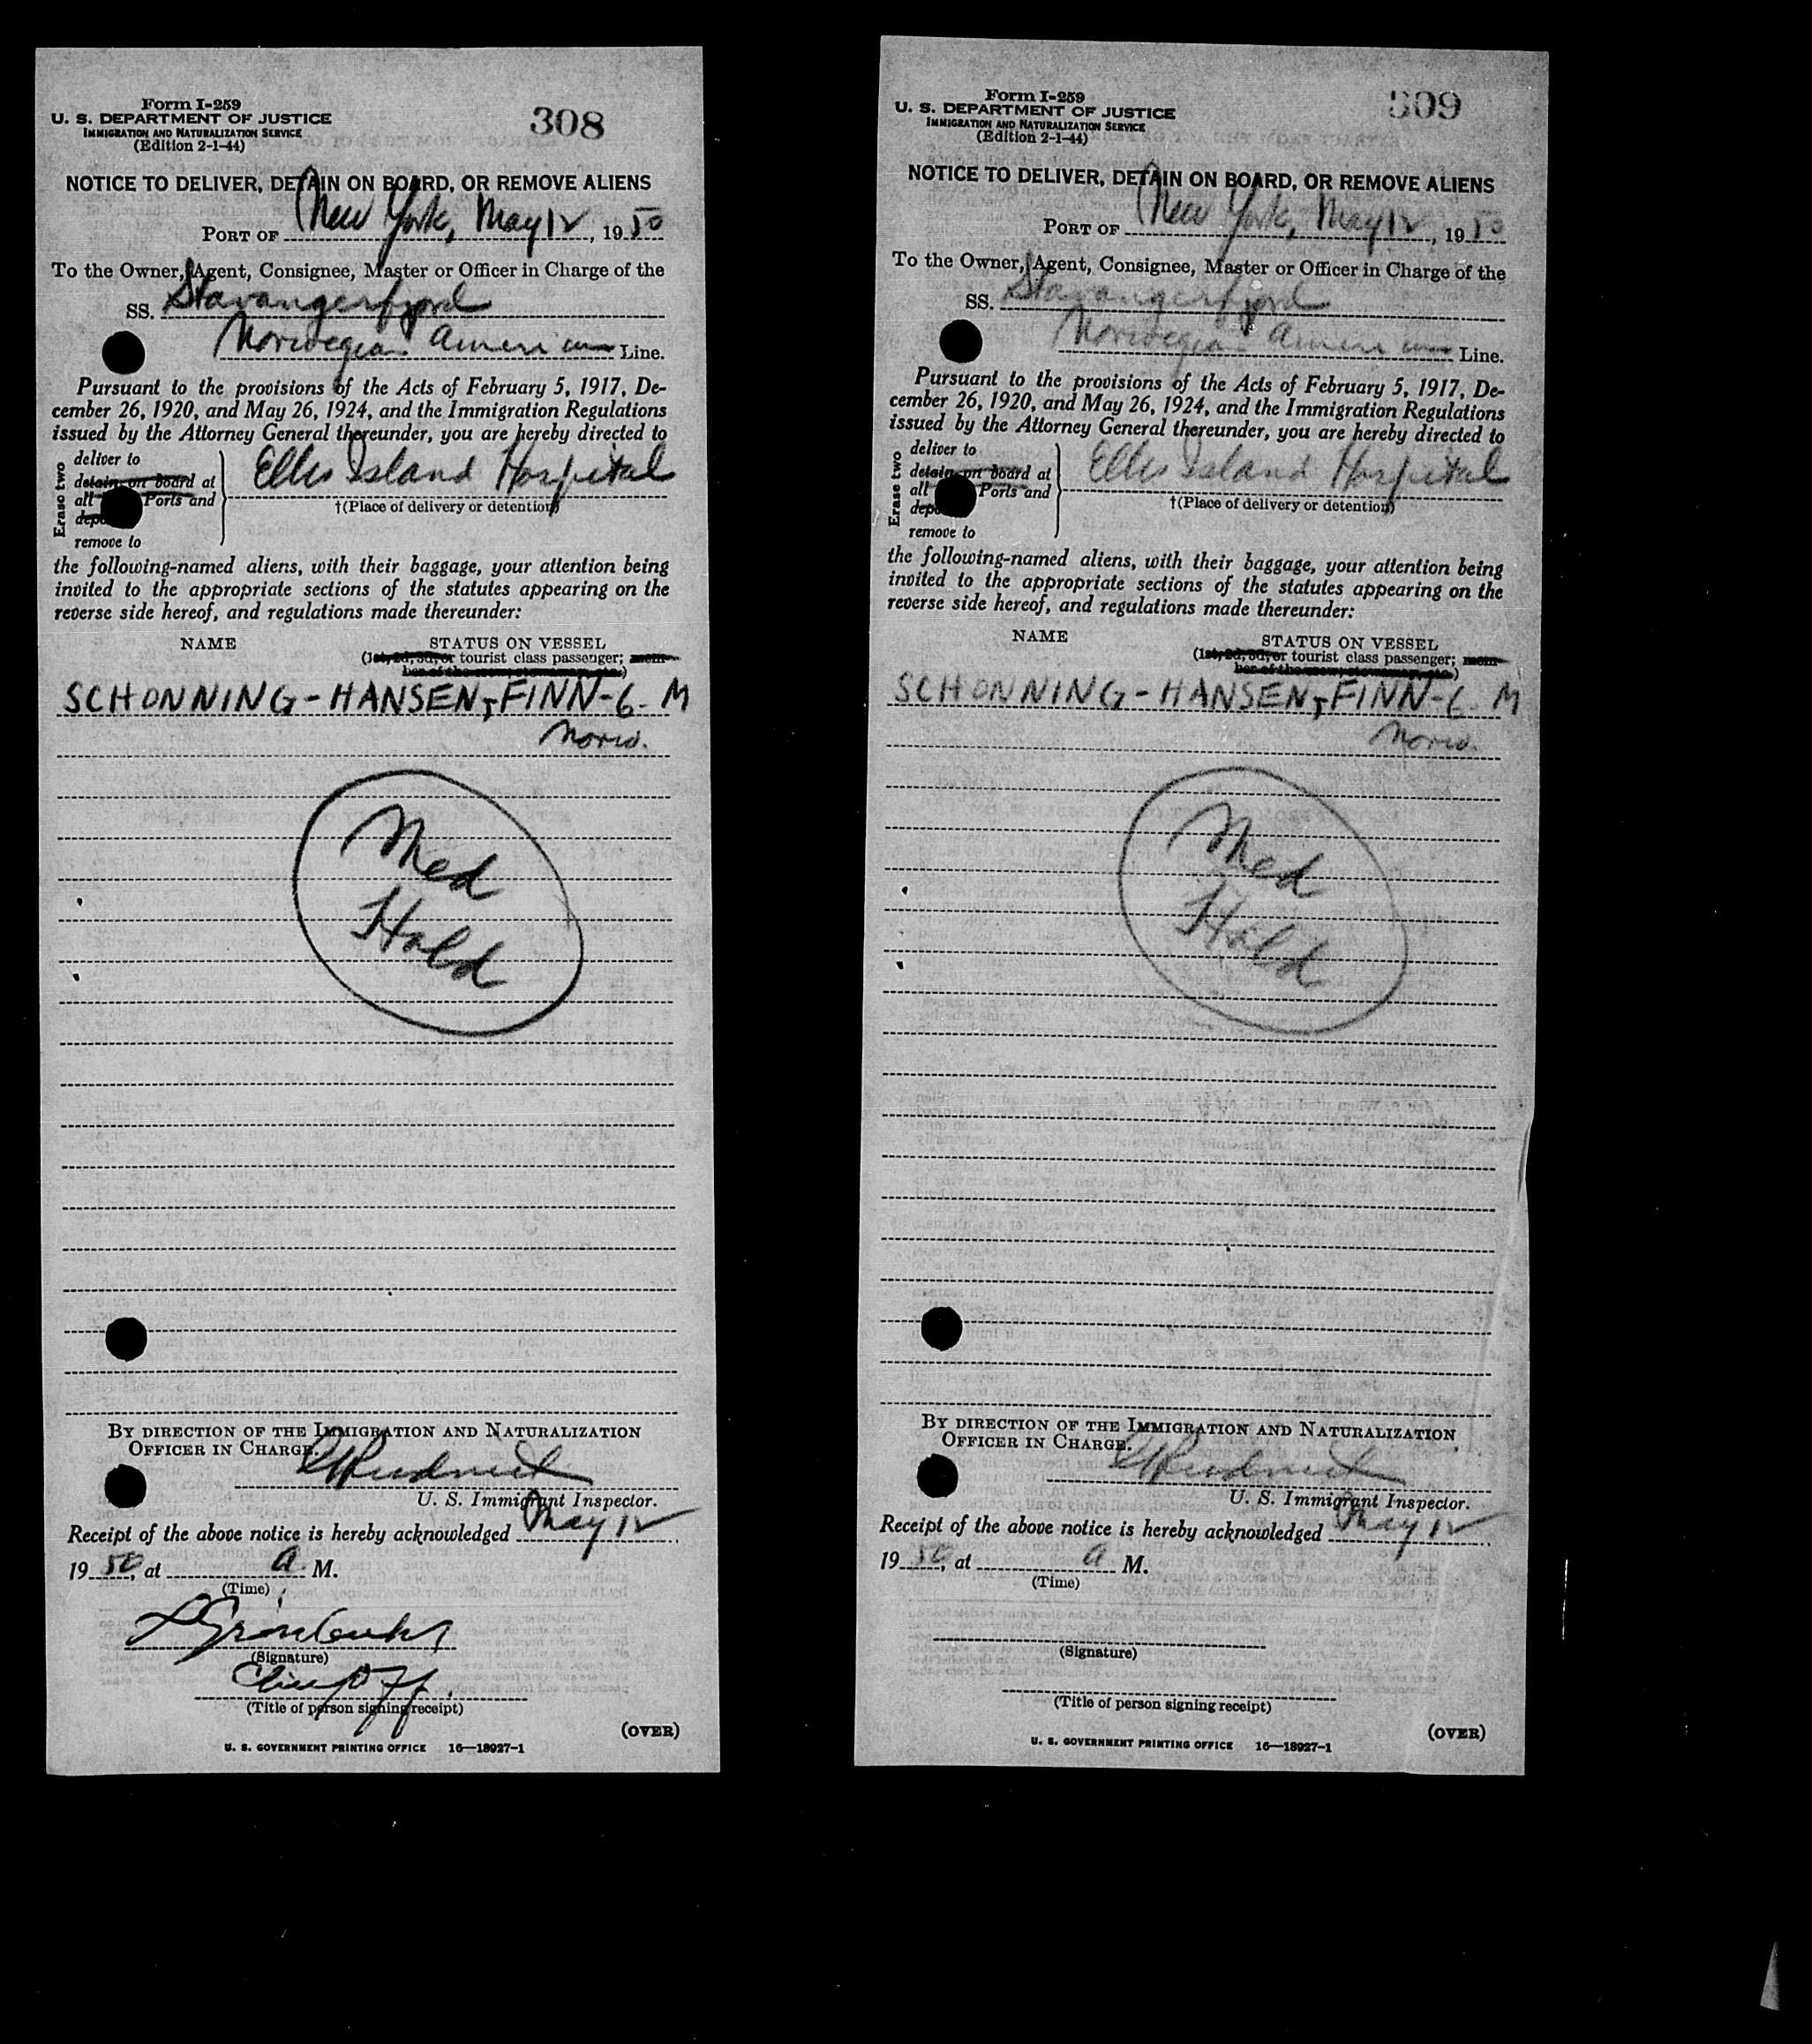 Form I-259
U. S. DEPARTMENT OF JUSTICE
IMMIGRATION AND NATURALIZATION SERVICE
(Edition 2-1-44)
308
NOTICE TO DELIVER, DETAIN ON BOARD, OR REMOVE ALIENS
PORT OF New York, May 12, 1950
To the Owner, Agent, Consignee, Master or Officer in Charge of the
SS. Stavangerfjord
Norwegian American Line.
Pursuant to the provisions of the Acts of February 5, 1917, De-
cember 26, 1920, and May 26, 1924, and the Immigration Regulations
issued by the Attorney General thereunder, you are hereby directed to
Erase two
deliver to
detain on board at
all Ports and
remove to
Ellis Island Hospital
†(Place of delivery or detention)
the following-named aliens, with their baggage, your attention being
invited to the appropriate sections of the statutes appearing on the
reverse side hereof, and regulations made thereunder:
NAME
STATUS ON VESSEL
(1st, 2d, 3d, or tourist class passenger; mem-
ber of the crew, stowaway, etc.)
SCHONNING-HANSEN, FINN-6. M
Norw.
Med
Hold
BY DIRECTION OF THE IMMIGRATION AND NATURALIZATION
OFFICER IN CHARGE.
U. S. Immigrant Inspector.
Receipt of the above notice is hereby acknowledged May 12
1950, at A. M.
(Time)
(Signature)
Chief Off.
(Title of person signing receipt)
(OVER)
U. S. GOVERNMENT PRINTING OFFICE 16—18927-1
Form I-259
U. S. DEPARTMENT OF JUSTICE
IMMIGRATION AND NATURALIZATION SERVICE
(Edition 2-1-44)
309
NOTICE TO DELIVER, DETAIN ON BOARD, OR REMOVE ALIENS
PORT OF New York, May 12, 1950
To the Owner, Agent, Consignee, Master or Officer in Charge of the
SS. Stavangerfjord
Norwegian American Line.
Pursuant to the provisions of the Acts of February 5, 1917, De-
cember 26, 1920, and May 26, 1924, and the Immigration Regulations
issued by the Attorney General thereunder, you are hereby directed to
Erase two
deliver to
detain on board at
all Ports and
remove to
Ellis Island Hospital
†(Place of delivery or detention)
the following-named aliens, with their baggage, your attention being
invited to the appropriate sections of the statutes appearing on the
reverse side hereof, and regulations made thereunder:
NAME
STATUS ON VESSEL
(1st, 2d, 3d, or tourist class passenger; mem-
ber of the crew, stowaway, etc.)
SCHONNING-HANSEN, FINN-6. M
Norw.
Med
Hold
BY DIRECTION OF THE IMMIGRATION AND NATURALIZATION
OFFICER IN CHARGE.
U. S. Immigrant Inspector.
Receipt of the above notice is hereby acknowledged May 12
1950, at A M.
(Time)
(Signature)
(Title of person signing receipt)
(OVER)
U. S. GOVERNMENT PRINTING OFFICE 16—18927-1